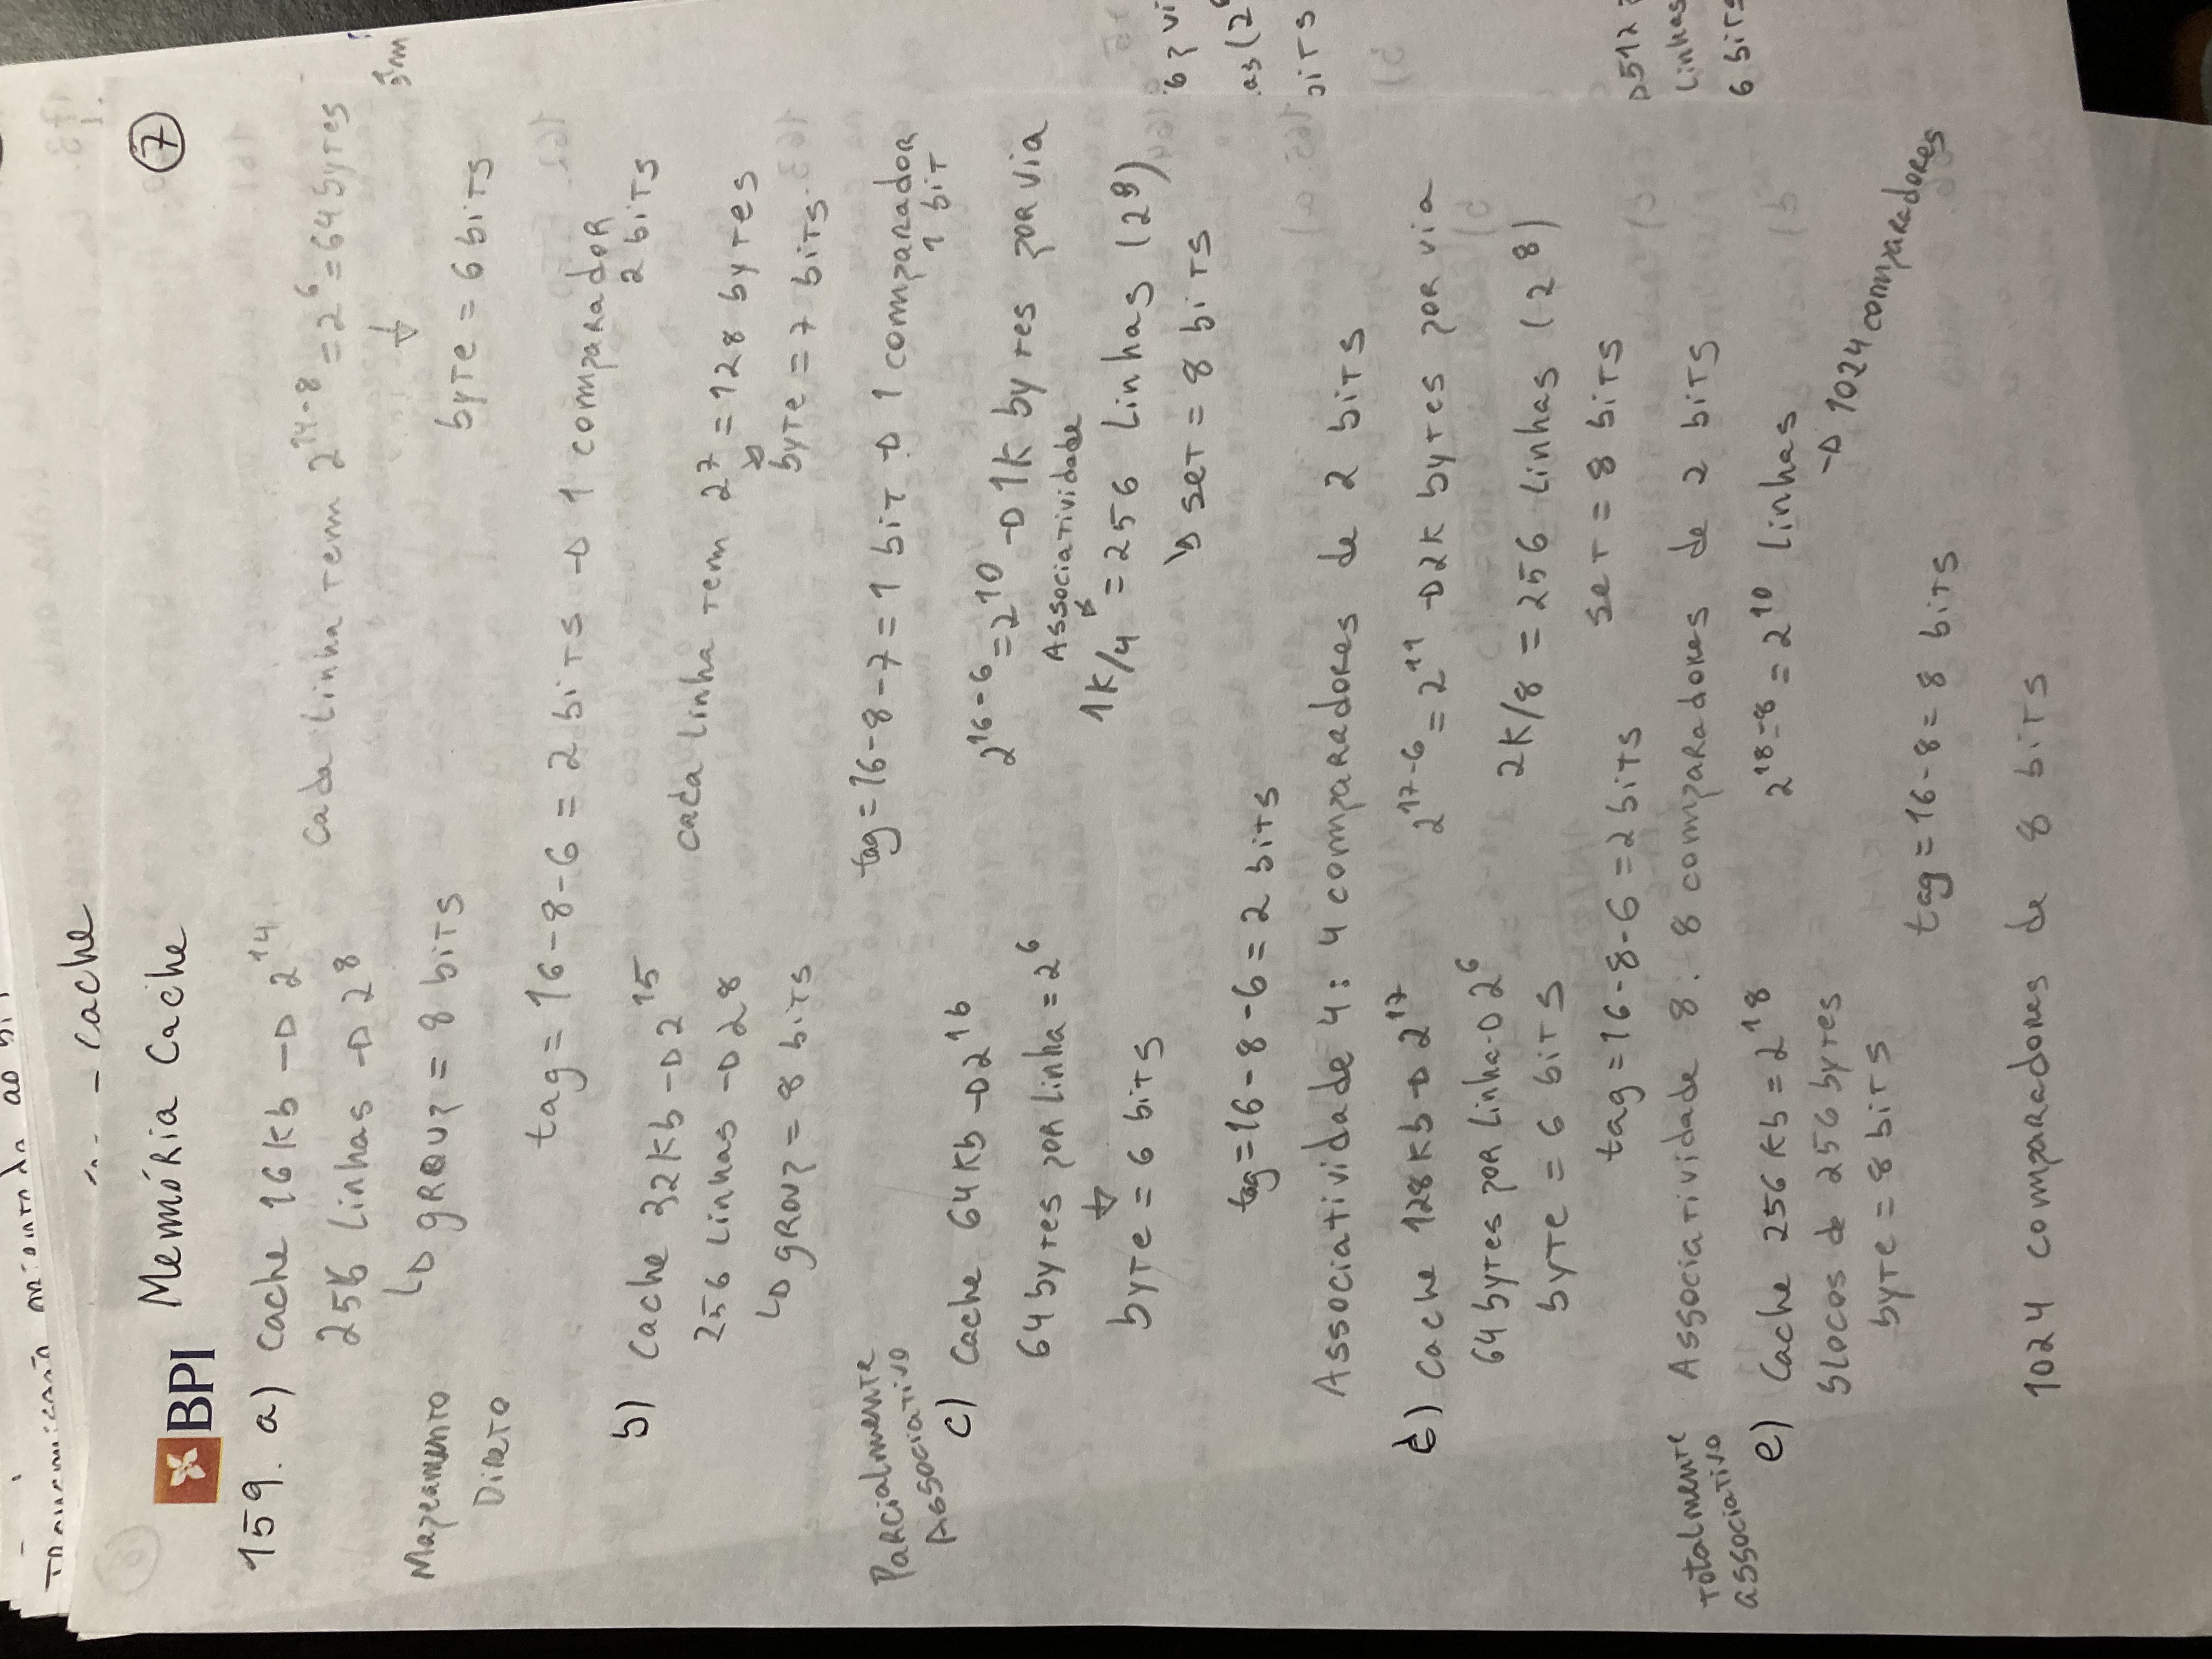 Transmissão orientada ao bit
- cache
BPI Memória Cache
7
159. a) cache 16Kb → 2^14
256 linhas → 2^8
↳ group = 8 bits
cada linha tem 2^14-8 = 2^6 = 64 bytes
↓
byte = 6 bits
Mapeamento
Direto
tag = 16-8-6 = 2 bits → 1 comparador
2 bits
b) cache 32Kb → 2^15
256 linhas → 2^8
↳ group = 8 bits
cada linha tem 2^7 = 128 bytes
↳
byte = 7 bits
tag = 16-8-7 = 1 bit → 1 comparador
1 bit
Parcialmente
Associativo
c) cache 64Kb → 2^16
64 bytes por linha = 2^6
↓
byte = 6 bits
2^16-6 = 2^10 → 1K bytes por via
Associatividade
1K/4 = 256 linhas (2^8)
↳ set = 8 bits
tag = 16-8-6 = 2 bits
Associatividade 4: 4 comparadores de 2 bits
d) cache 128Kb → 2^17
64 bytes por linha → 2^6
byte = 6 bits
2^17-6 = 2^11 → 2K bytes por via
2K/8 = 256 linhas (2^8)
set = 8 bits
tag = 16-8-6 = 2 bits
Associatividade 8: 8 comparadores de 2 bits
Totalmente
associativo
e) cache 256Kb = 2^18
blocos de 256 bytes
byte = 8 bits
2^18-8 = 2^10 linhas
→ 1024 comparadores
tag = 16-8 = 8 bits
1024 comparadores de 8 bits
linhas
6 bits